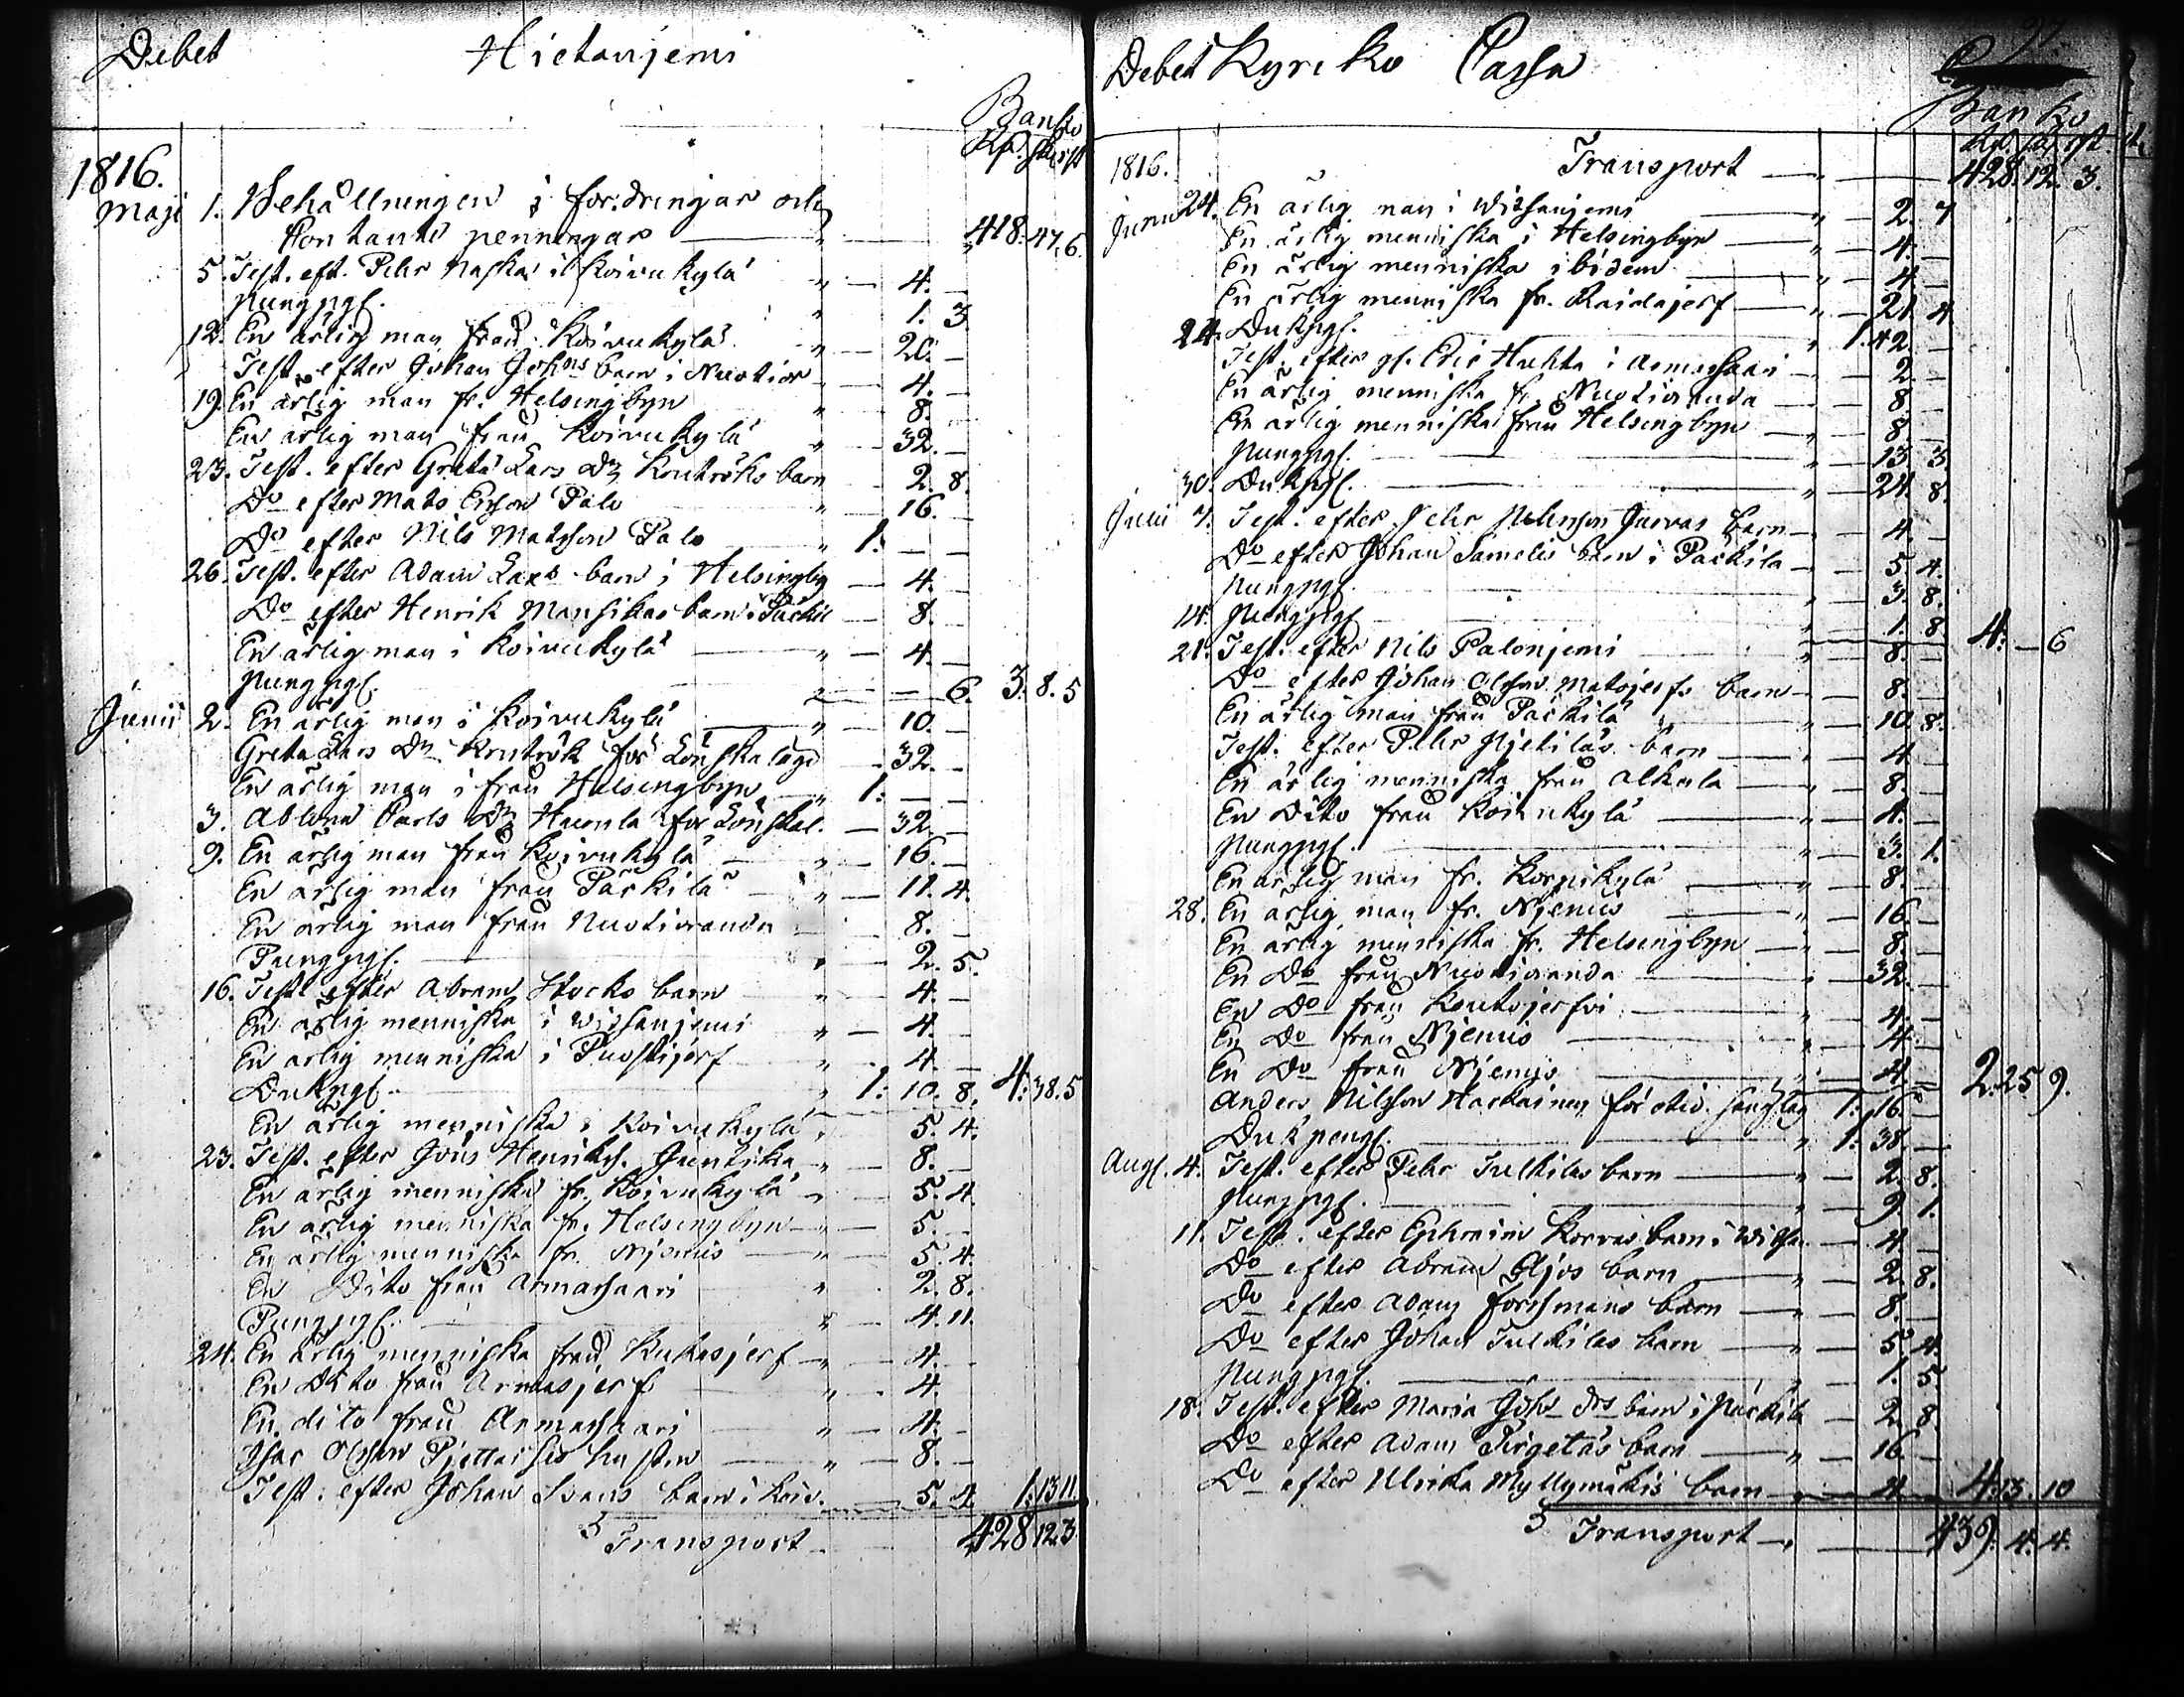 Debet Hietanjemi
Banko
Rd. sk. rst
1816.
Maji 1. Behållningen i fordringar och
Contanta penningar — „ — 418. 47. 6.
5. Test. eft. Pehr Naska i Koivukylä „ — 4. —
Pungpgr. „ 1. 3.
12. En ärlig man från Koivukylä „ — 20. —
Test. efter Johan Johns barn i Nuotior „ — 4. —
19. En ärlig man fr. Helsingbyn „ — 8. —
En ärlig man från Koivukylä „ — 32. —
23. Test. efter Greta Lars Dr Krutröks barn — 2. 8.
Do efter Mats Ersson Palo „ — 16. —
Do efter Nils Matsson Palo „ 1: — —
26. Test. efter Adam Lars barn i Helsingby — 4. —
Do efter Henrik Mansikas barn i Päckil — 8. —
En ärlig man i Koivukylä „ — 4. —
Pungpgr. — — 6. 3. 8. 5
Junii 2. En ärlig man i Koivukylä „ — 10. —
Greta Lars Dr Krutrök för Lönskaläge — 32. —
En ärlig man i från Helsingbyn „ 1: — —
3. Carls Dr för Lönskal. — 32. —
9. En ärlig man från Koivukylä „ — 16. —
En ärlig man från Päckilä „ — 11. 4.
En ärlig man från Nuotioranda — 8. —
Pungpgr. „ — 2. 5.
16. Test. efter Abram Stocks barn „ — 4. —
En ärlig menniska i Witsanjemi „ — 4. —
En ärlig menniska i Puostijerf „ — 4. —
Dukpgr. „ 1: 10. 8. 4: 38. 5
En ärlig menniska i Koivukylä „ 5. 4.
23. Test. efter Jöns Henriks. „ — 8. —
En ärlig menniska fr. Koivukylä „ — 5. 4.
En ärlig menniska fr. Helsingbyn „ — 5. —
En ärlig menniska fr. Njemis „ — 5. 4.
En Dito från Armassaari „ 2. 8.
Pungpgr. „ — 4. 11.
24. En ärlig menniska från Kukasjerf „ — 4. —
En Dito från Armasjerf „ — 4. —
En dito från Armassaari „ — 4. —
Isac Olsson hustru „ — 8. —
Test. efter Johan Svans barn i Koiv. — 5. 4. 1: 13. 11.
Transport — 428 12. 3.
Debet Kyrcko Cassa
Banko
Rd. sk. rst.
1816. Transport — „ — 428. 12. 3.
Junii 24. En ärlig man i Witsanjemi „ — 2. 7
En ärlig menniska i Helsingbyn „ — 4. —
En ärlig menniska ibidem „ — 4. —
En ärlig menniska fr. Raidajerf „ — 21. 4.
24. Dukpgr. „ 1. 42. —
Test. efter gl. Eric Huhta i Armassaari — 2. —
En ärlig menniska fr. Nuotioranda — 8. —
En ärlig menniska från Helsingbyn „ — 8. —
Pungpgr. „ — 13. 3.
30. Dukpgr. „ — 24. 8.
Julii 7. Test. efter Pehr barn — 4. —
Do efter Johan Samelis barn i Päckila — 5. 4.
Pungpgr. „ — 3. 8.
14. Pungpgr. „ — 1. 8 4: — 6
21. Test. efter Nils Palonjemi „ — 8. —
Do efter Johan Olsson Matojerfs barn — 8. —
En ärlig man från Päckilä „ — 10. 8.
Test. efter Pehr barn „ — 4. —
En ärlig menniska från Alkula „ — 8. —
En Dito från Koivukylä „ — 4. —
Pungpgr. „ — 3. 1.
En ärlig man fr. Korpikylä „ — 8. —
28. En ärlig man fr. Njemis „ — 16. —
En ärlig menniska fr. Helsingbyn „ — 8. —
En Do från Nuotioranda „ — 32. —
En Do från Koutojerfvi „ — 4. —
En Do från Njemis „ — 4. —
En Do från Njemis „ — 4. — 2: 25 9.
Anders Nilsson 1: 16. —
Dukpengr. „ 1: 38 —
Augs. 4. Test. efter Pehr Tulkilas barn „ — 2. 8.
Pungpgr. „ — 9 1.
11. Test. efter Ephraim Korvas barn i Witsan. — 4. —
Do efter Abram barn „ — 2. 8.
Do efter Adam Forssmans barn „ — 8. —
Do efter Johan Tulkilas barn „ — 5. 4.
Pungpgr. „ — 1. 5.
18. Test. efter Maria Johs Drs barn i Päckilä — 2. 8.
Do efter Adam Pirgetäs barn „ — 16. —
Do efter Ulrika Myllymäkis barn „ — 4. — 4: 13. 10
Transport — „ — 439. 4. 4.